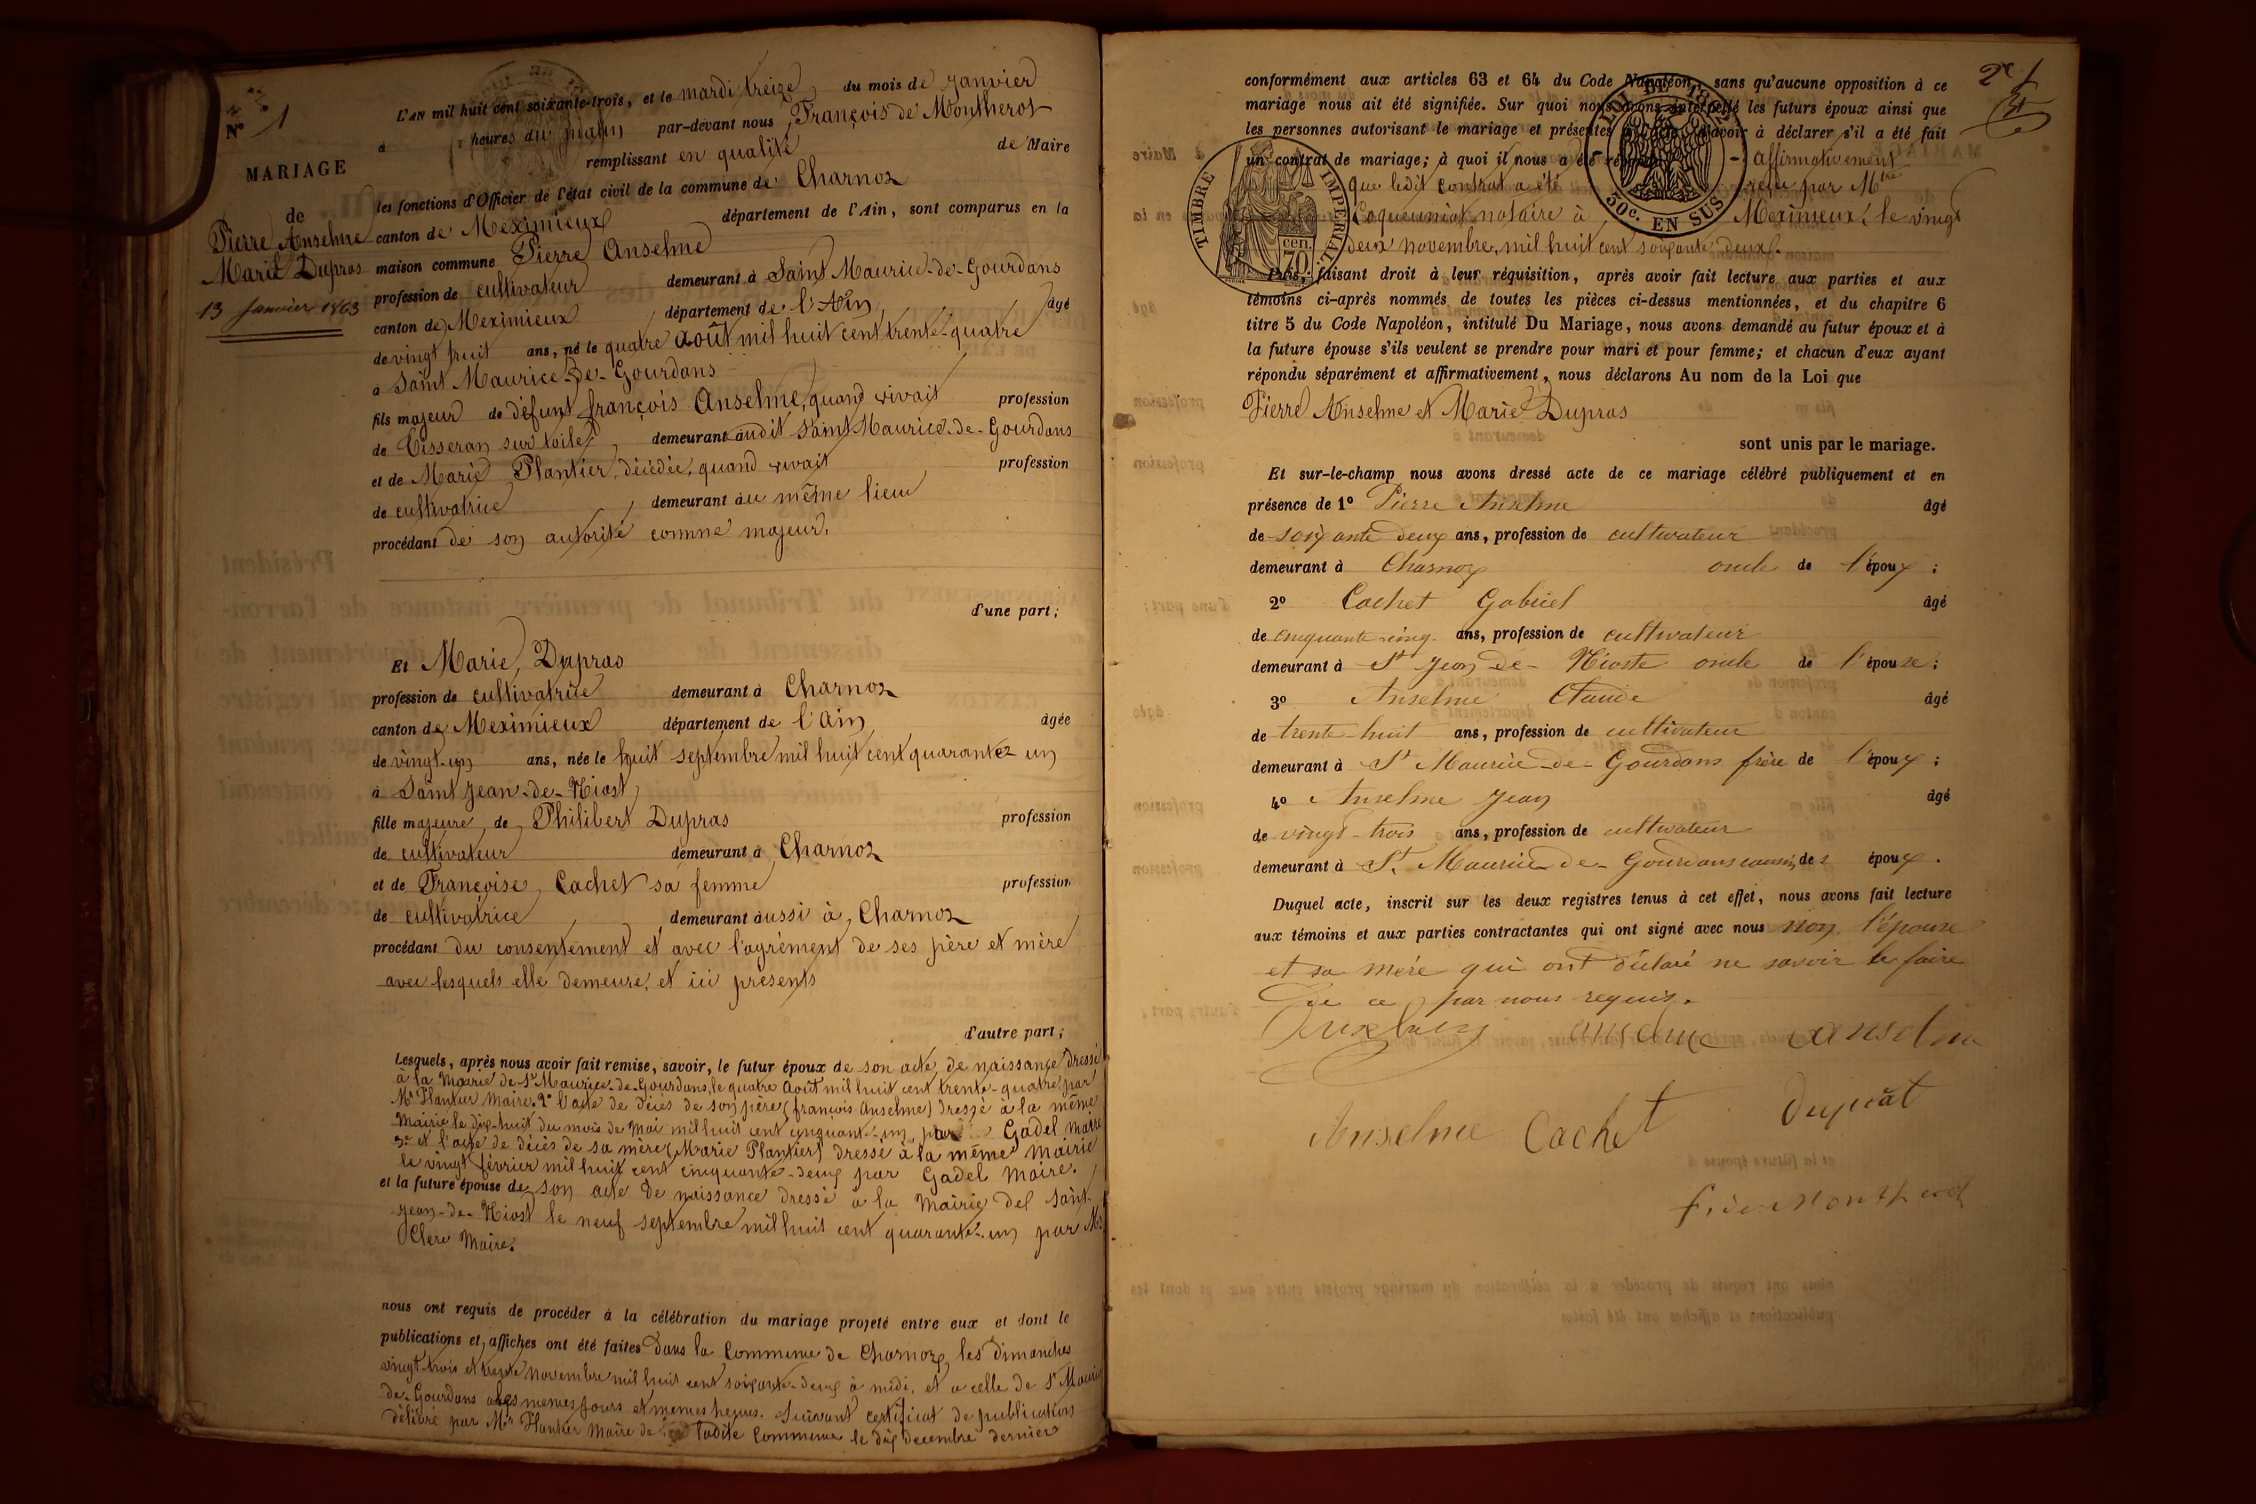 N° 1
MARIAGE
de
Pierre Anselme
Marie Dupras
13 Janvier 1863
L'AN mil huit cent soixante-trois, et le mardi treize, du mois de Janvier
à heures du matin par-devant nous François de Montherot
remplissant en qualité de Maire
les fonctions d'Officier de l'état civil de la commune de Charnoz
canton de Meximieux département de l'Ain, sont comparus en la
maison commune Pierre Anselme
profession de cultivateur demeurant à Saint Maurice-de-Gourdans
canton de Meximieux, département de l'Ain, âgé
de vingt huit ans, né le quatre Août mil huit cent trente-quatre
à Saint Maurice-de-Gourdans
fils majeur de défunt françois Anselme, quand vivait profession
de Tisseran sur toile, demeurant audit Saint Maurice-de-Gourdans
et de Marie Plantier, décédée, quand vivait profession
de cultivatrice, demeurant au même lieu
procédant de son autorité comme majeur.
d'une part;
Et Marie, Dupras
profession de cultivatrice demeurant à Charnoz
canton de Meximieux département de l'Ain, âgée
de vingt-un ans, née le huit septembre mil huit cent quarante un
à Saint Jean-de-Niost,
fille majeure, de Philibert Dupras profession
de cultivateur demeurant à Charnoz
et de Françoise, Cachet sa femme profession
de cultivatrice, demeurant aussi à, Charnoz
procédant du consentement et avec l'agrément de ses père et mère
avec lesquels elle demeure, et ici présents
d'autre part;
Lesquels, après nous avoir fait remise, savoir, le futur époux de son acte, de naissance dressé
à la Mairie de St Maurice-de-Gourdans, le quatre Août mil huit cent trente-quatre par
Mr Plantier Maire. 2° l'acte de décès de son père (françois Anselme) dressé à la même
Mairie le dix-huit du mois de Mai mil huit cent cinquante-un par Gadel maire
3° et l'acte de décès de sa mère (Marie Plantier) dressé à la même Mairie
le vingt février mil huit cent cinquante-deux par Gadel Maire.
et la future épouse de son acte de naissance dressé à la Mairie de Saint
Jean-de-Niost le neuf septembre mil huit cent quarante-un par Mr
Clerc Maire.
nous ont requis de procéder à la célébration du mariage projeté entre eux et dont le
publications et affiches ont été faites dans la Commune de Charnoz, les dimanches
vingt-trois et trente Novembre mil huit cent soixante-deux à midi, et a celle de St Mauri
de-Gourdans aux memes jours et memes heures. Suivant certificat de publications
délivré par Mr Plantier Maire de ladite Commune le dix decembre dernier
2e f
conformément aux articles 63 et 64 du Code Napoléon, sans qu'aucune opposition à ce
mariage nous ait été signifiée. Sur quoi nous avons interpellé les futurs époux ainsi que
les personnes autorisant le mariage et présentes à déclarer s'il a été fait
un contrat de mariage; à quoi il nous a été répondu affirmativement
que ledit contrat a été reçu par Mtre
notaire à Meximieux, le vingt
deux novembre, mil huit cent soixante deux.
TIMBRE IMPERIAL
cen. 70
LOI DE 1862
50c. EN SUS
Puis, faisant droit à leur réquisition, après avoir fait lecture aux parties et aux
témoins ci-après nommés de toutes les pièces ci-dessus mentionnées, et du chapitre 6
titre 5 du Code Napoléon, intitulé Du Mariage, nous avons demandé au futur époux et à
la future épouse s'ils veulent se prendre pour mari et pour femme; et chacun d'eux ayant
répondu séparément et affirmativement, nous déclarons Au nom de la Loi que
Pierre Anselme et Marie Dupras
sont unis par le mariage.
Et sur-le-champ nous avons dressé acte de ce mariage célébré publiquement et en
présence de 1° Pierre Anselme âgé
de soixante deux ans, profession de cultivateur
demeurant à Charnoz oncle de l'époux;
2° Cachet Gabriel âgé
de cinquante-cinq ans, profession de cultivateur
demeurant à St Jean-de-Nioste oncle de l'épouse;
3° Anselme Claude âgé
de trente-huit ans, profession de cultivateur
demeurant à St Maurice-de-Gourdans frère de l'époux;
4° Anselme Jean âgé
de vingt-trois ans, profession de cultivateur
demeurant à St. Maurice-de-Gourdans cousin, des époux.
Duquel acte, inscrit sur les deux registres tenus à cet effet, nous avons fait lecture
aux témoins et aux parties contractantes qui ont signé avec nous non l'épouse
et sa mère qui ont déclaré ne savoir le faire
De ce par nous requis.
Anselme anselme anselme
Anselme Cachet duprat
f. de Montherot